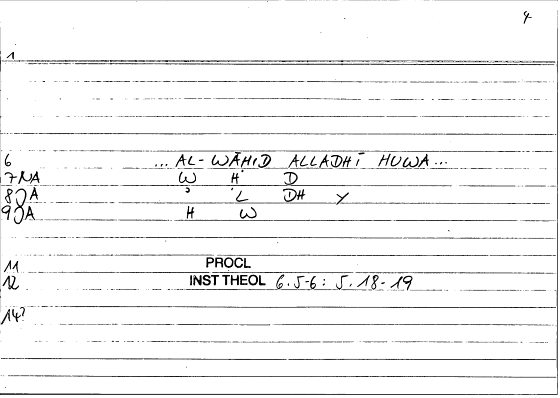 4
1
6 ... AL-WĀḤID ALLADHĪ HUWA ...
7 NA W Ḥ D
8 JA ʾ L DH Y
9 JA H W
11 PROCL
12 INST THEOL 6.5-6: 5.18-19
14?